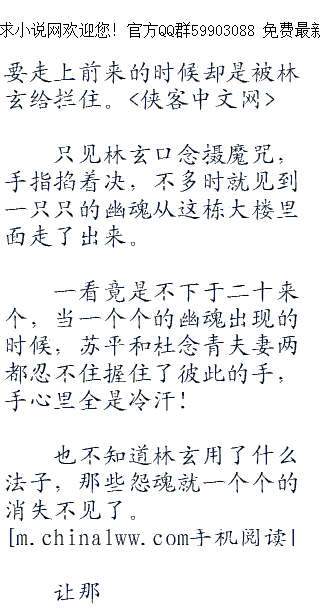 求小说网欢迎您！官方QQ群59903088 免费最新
要走上前来的时候却是被林
玄给拦住。<侠客中文网>
只见林玄口念摄魔咒，
手指掐着决，不多时就见到
一只只的幽魂从这栋大楼里
面走了出来。
一看竟是不下于二十来
个，当一个个的幽魂出现的
时候，苏平和杜念青夫妻两
都忍不住握住了彼此的手，
手心里全是冷汗！
也不知道林玄用了什么
法子，那些怨魂就一个个的
消失不见了。
[m.chinalww.com手机阅读|
让那